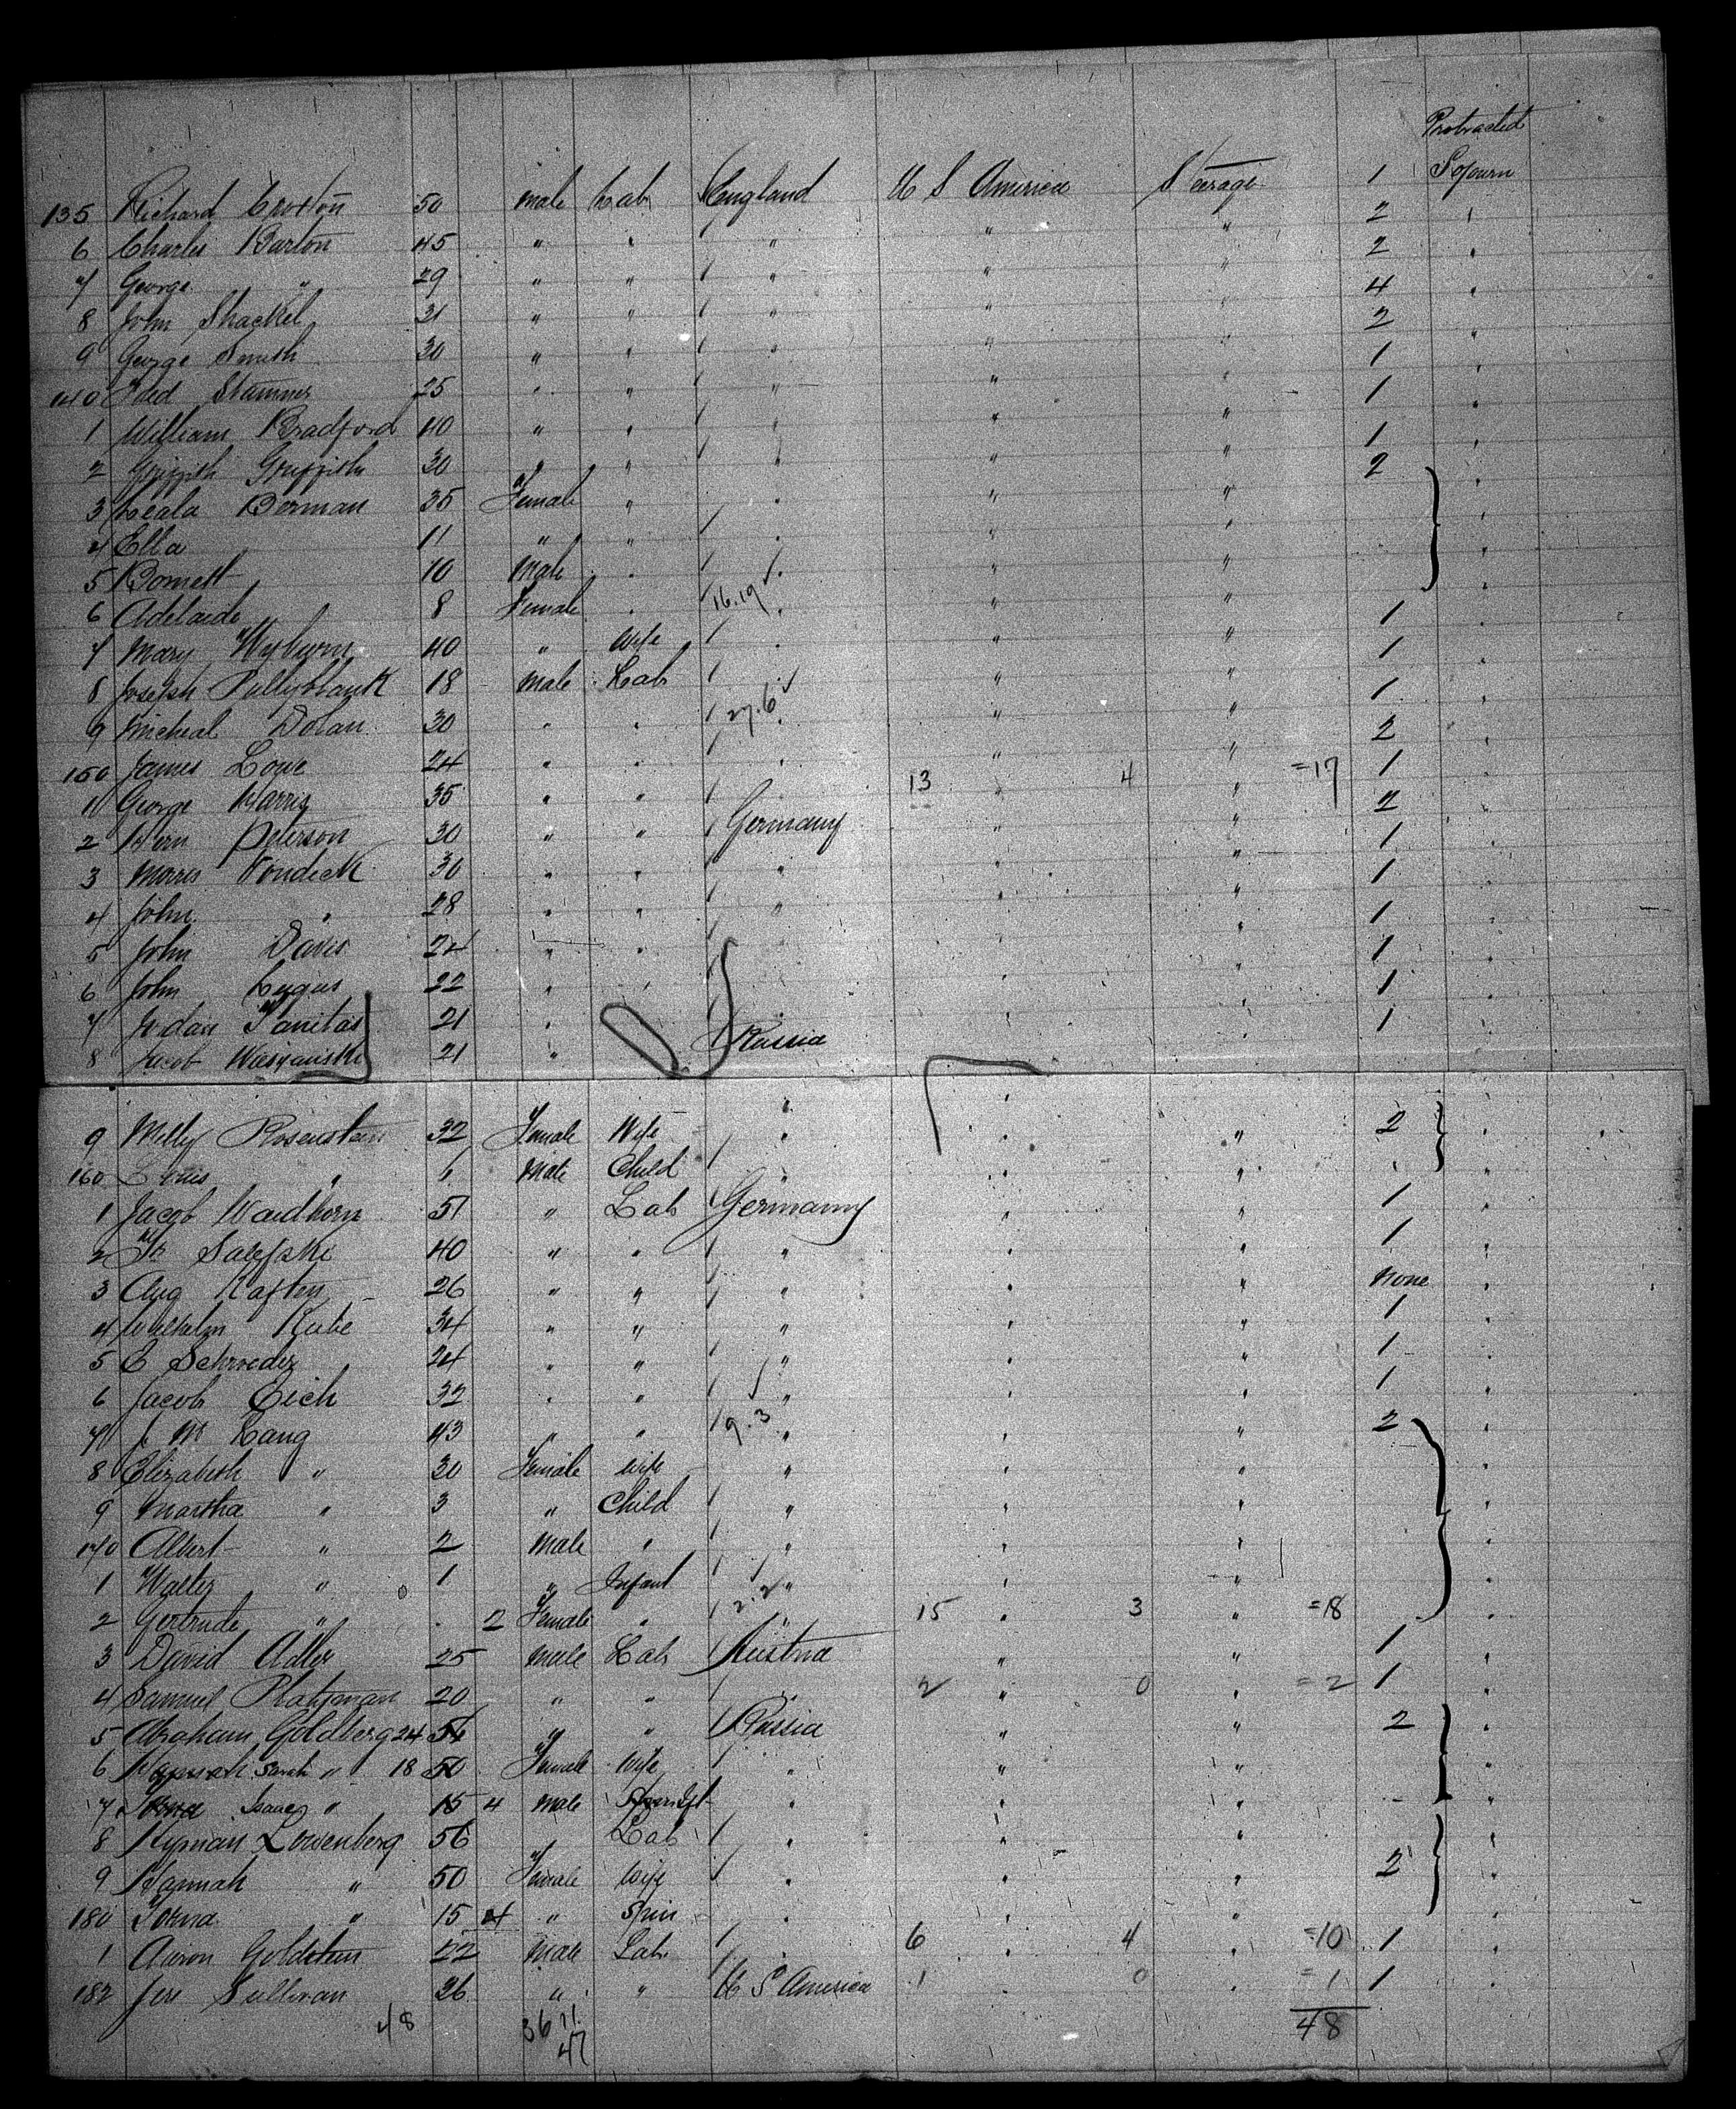 Protracted
Sojourn
135 Richard Croston 50 male Lab England U S America Steerage 1
6 Charles Barton 45 " " " " " 2 "
7 George " 29 " " " " " 2 "
8 John Shackel 31 " " " " " 4 "
9 George Smith 30 " " " " " 2 "
140 Stammers 25 " " " " " 1 "
1 William Bradford 40 " " " " " 1 "
2 Griffith Griffith 30 " " " " " 1 "
3 Leala Borman 35 Female " " " " 2 "
4 Ella 11 " " " " " "
5 Bornett 10 Male " " " " "
6 Adelaide 8 Female " 16.19 " " " "
7 Mary 40 " Wife " " " 1 "
8 Joseph Pullyblank 18 male Lab " " " 1 "
9 Micheal Dolan 30 " " 27.6 " " " 1 "
150 James Lowe 24 " " " " " 2 "
1 George Harris 35 " " " 13 " 4 " =17 1 "
2 Peterson 30 " " Germany " " 2 "
3 Morris Vondeck 30 " " " " " 1 "
4 John " 28 " " " " " 1 "
5 John Davis 24 " " " " 1 "
6 John 22 " " " " 1 "
7 Tanitas 21 " " " 1 "
8 Jacob 21 " Russia " 1 "
9 Milly Rosenstein 32 Female Wife " " " 2 "
160 Louis " Male Child " " " "
1 Jacob 51 " Lab Germany " " 1 "
2 40 " " " " " 1 "
3 Aug Kaften 26 " " " " " None "
4 Wilhelm Kube 34 " " " " " 1 "
5 E Schroeder 24 " " " " " 1 "
6 Jacob Eich 32 " " " " " 1 "
7 J M Lang 43 " " 9.3 " " " 2 "
8 Elizabeth " 30 Female wife " " " "
9 Martha " 3 " Child " " " "
170 Albert " 2 Male " " " " "
1 Walter " 1 " Infant " " " "
2 Gertrude " 2 Female " 2.2 " 15 " 3 " =18 "
3 David Adler 25 male Lab Austria " " 1 "
4 Samuel 20 " " " 2 " 0 " =2 1 "
5 Abraham Goldberg 24 56 " " Russia " " 2 "
6 Hannah Sarah " 18 50 Female Wife " " " "
7 Isaac " 15 4 Male Inft " " " "
8 Hyman Lowenberg 56 Lab " " " "
9 Hannah " 50 Female Wife " " " 2 "
180 " 15 4 " Spin " " " "
1 Aaron Goldstein 22 Male Lab " 6 " 4 " =10 1 "
182 Jere Sullivan 26 " " U S America 1 0 " =1 1 "
48 36 11 48
47